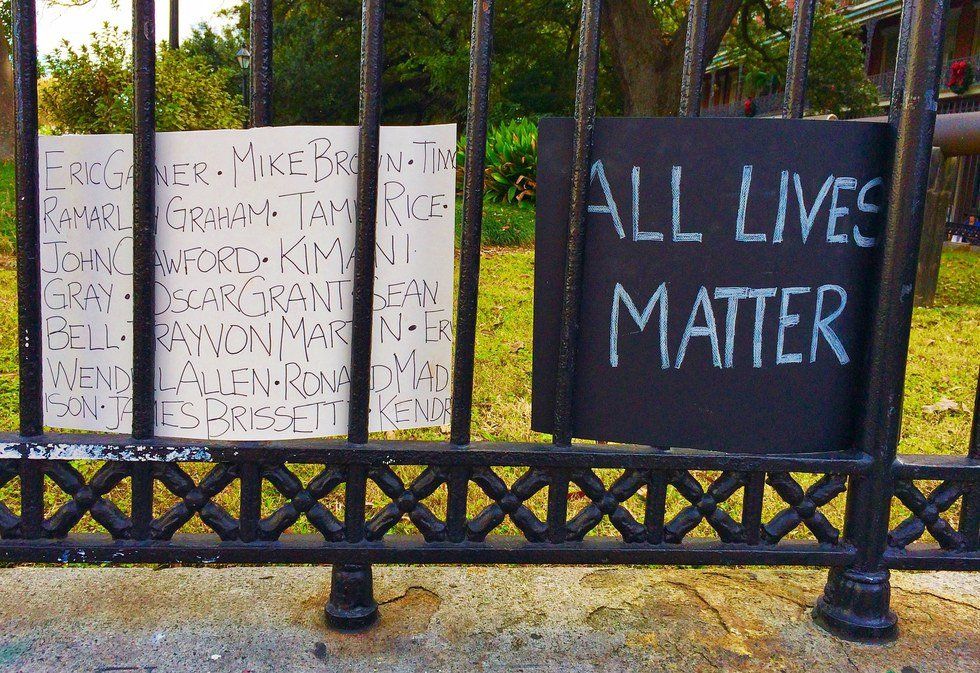 ERIC GARNER · MIKE BROWN ·
RAMARLEY GRAHAM · TAMIR RICE ·
JOHN CRAWFORD · KIMANI
GRAY · OSCAR GRANT · SEAN
BELL · TRAYVON MARTIN ·
WENDELL ALLEN · RONALD MAD
ISON · JAMES BRISSETTE ·
ALL LIVES
MATTER